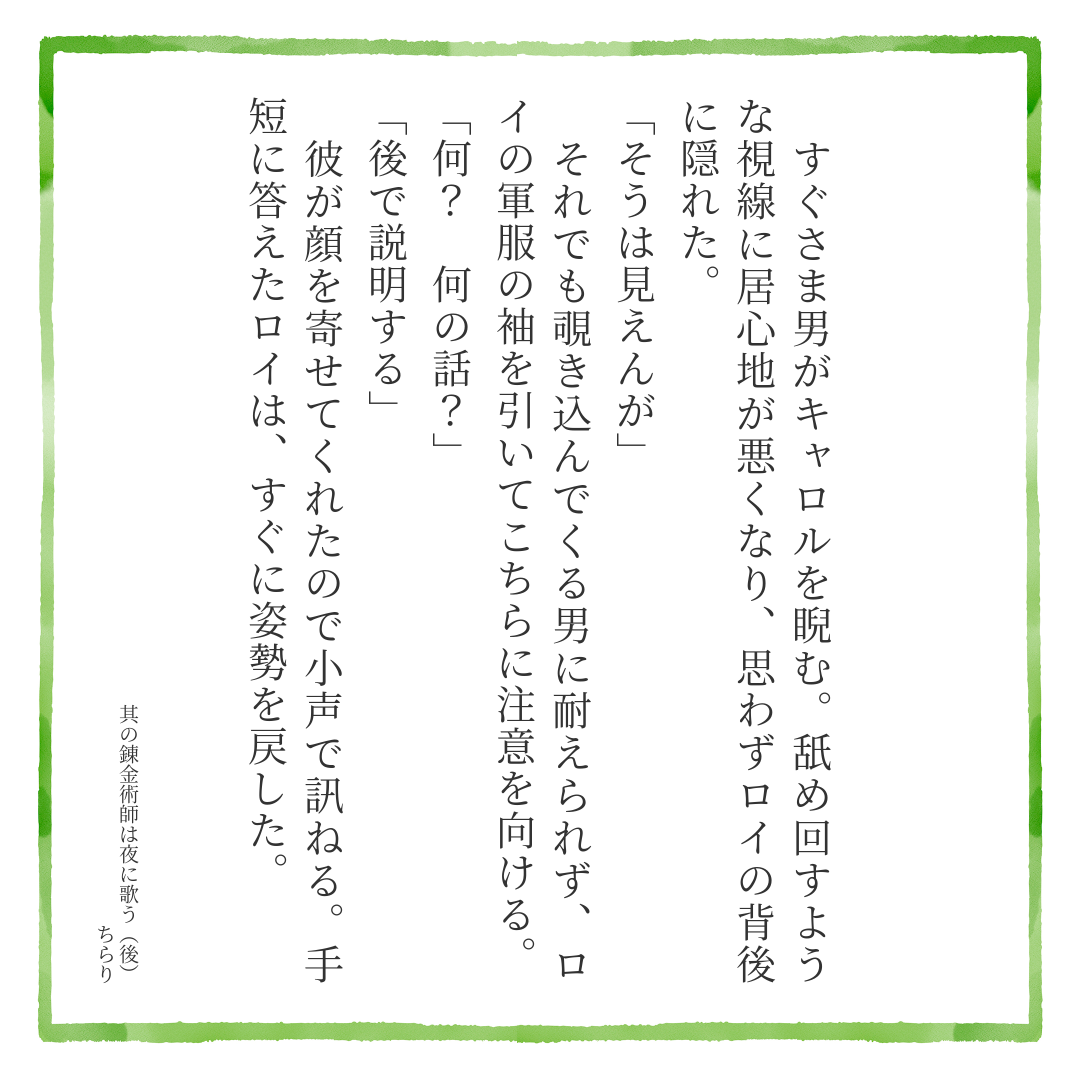 すぐさま男がキャロルを睨む。舐め回すよう
な視線に居心地が悪くなり、思わずロイの背後
に隠れた。
「そうは見えんが」
　それでも覗き込んでくる男に耐えられず、ロ
イの軍服の袖を引いてこちらに注意を向ける。
「何？　何の話？」
「後で説明する」
　彼が顔を寄せてくれたので小声で訊ねる。手
短に答えたロイは、すぐに姿勢を戻した。
其の錬金術師は夜に歌う（後）
ちらり